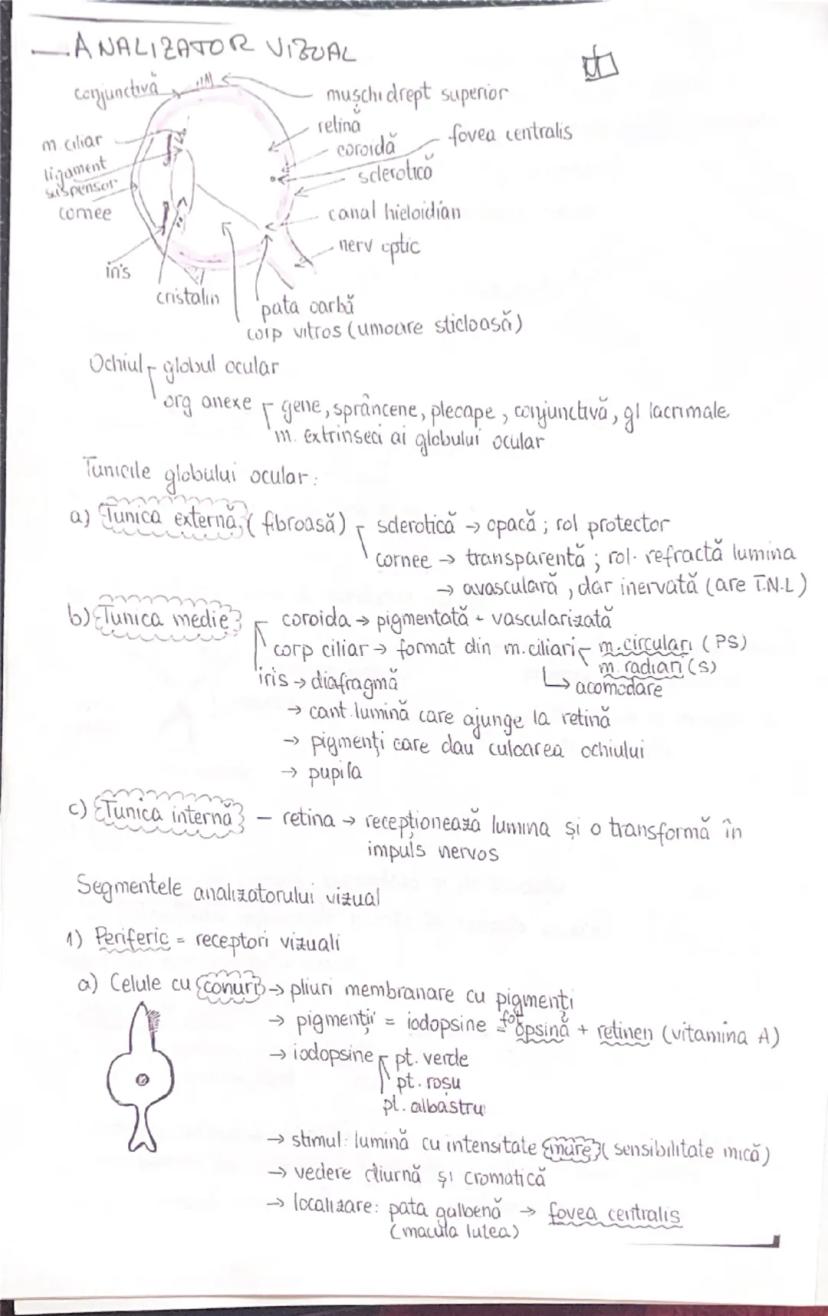 ANALIZATOR VIZUAL
conjunctivă
mușchi drept superior
retină
fovea centralis
m. ciliar
coroidă
ligament
suspensor
sclerotică
cornee
canal hieloidian
nerv optic
iris
cristalin
pata oarbă
corp vitros (umoare sticloasă)
Ochiul globul ocular
org anexe gene, sprâncene, pleoape, conjunctivă, gl lacrimale
m. extrinseci ai globului ocular
Tunicile globului ocular:
a) Tunica externă (fibroasă) sclerotică → opacă; rol protector
cornee → transparentă; rol. refractă lumina
→ avasculară, dar inervată (are T.N.L)
b) Tunica medie coroida → pigmentată + vascularizată
corp ciliar → format din m. ciliari m. circulari (PS)
m. radiari (S)
iris → diafragmă ↳ acomodare
→ cant. lumină care ajunge la retină
→ pigmenți care dau culoarea ochiului
→ pupila
c) Tunica internă – retina → recepționează lumina și o transformă în
impuls nervos
Segmentele analizatorului vizual
1) Periferic = receptori vizuali
a) Celule cu conuri → pliuri membranare cu pigmenți
→ pigmenții = iodopsine = fotopsină + retinen (vitamina A)
→ iodopsine pt. verde
pt. roșu
pt. albastru
→ stimul: lumină cu intensitate mare (sensibilitate mică)
→ vedere diurnă și cromatică
→ localizare: pata galbenă → fovea centralis
(macula lutea)